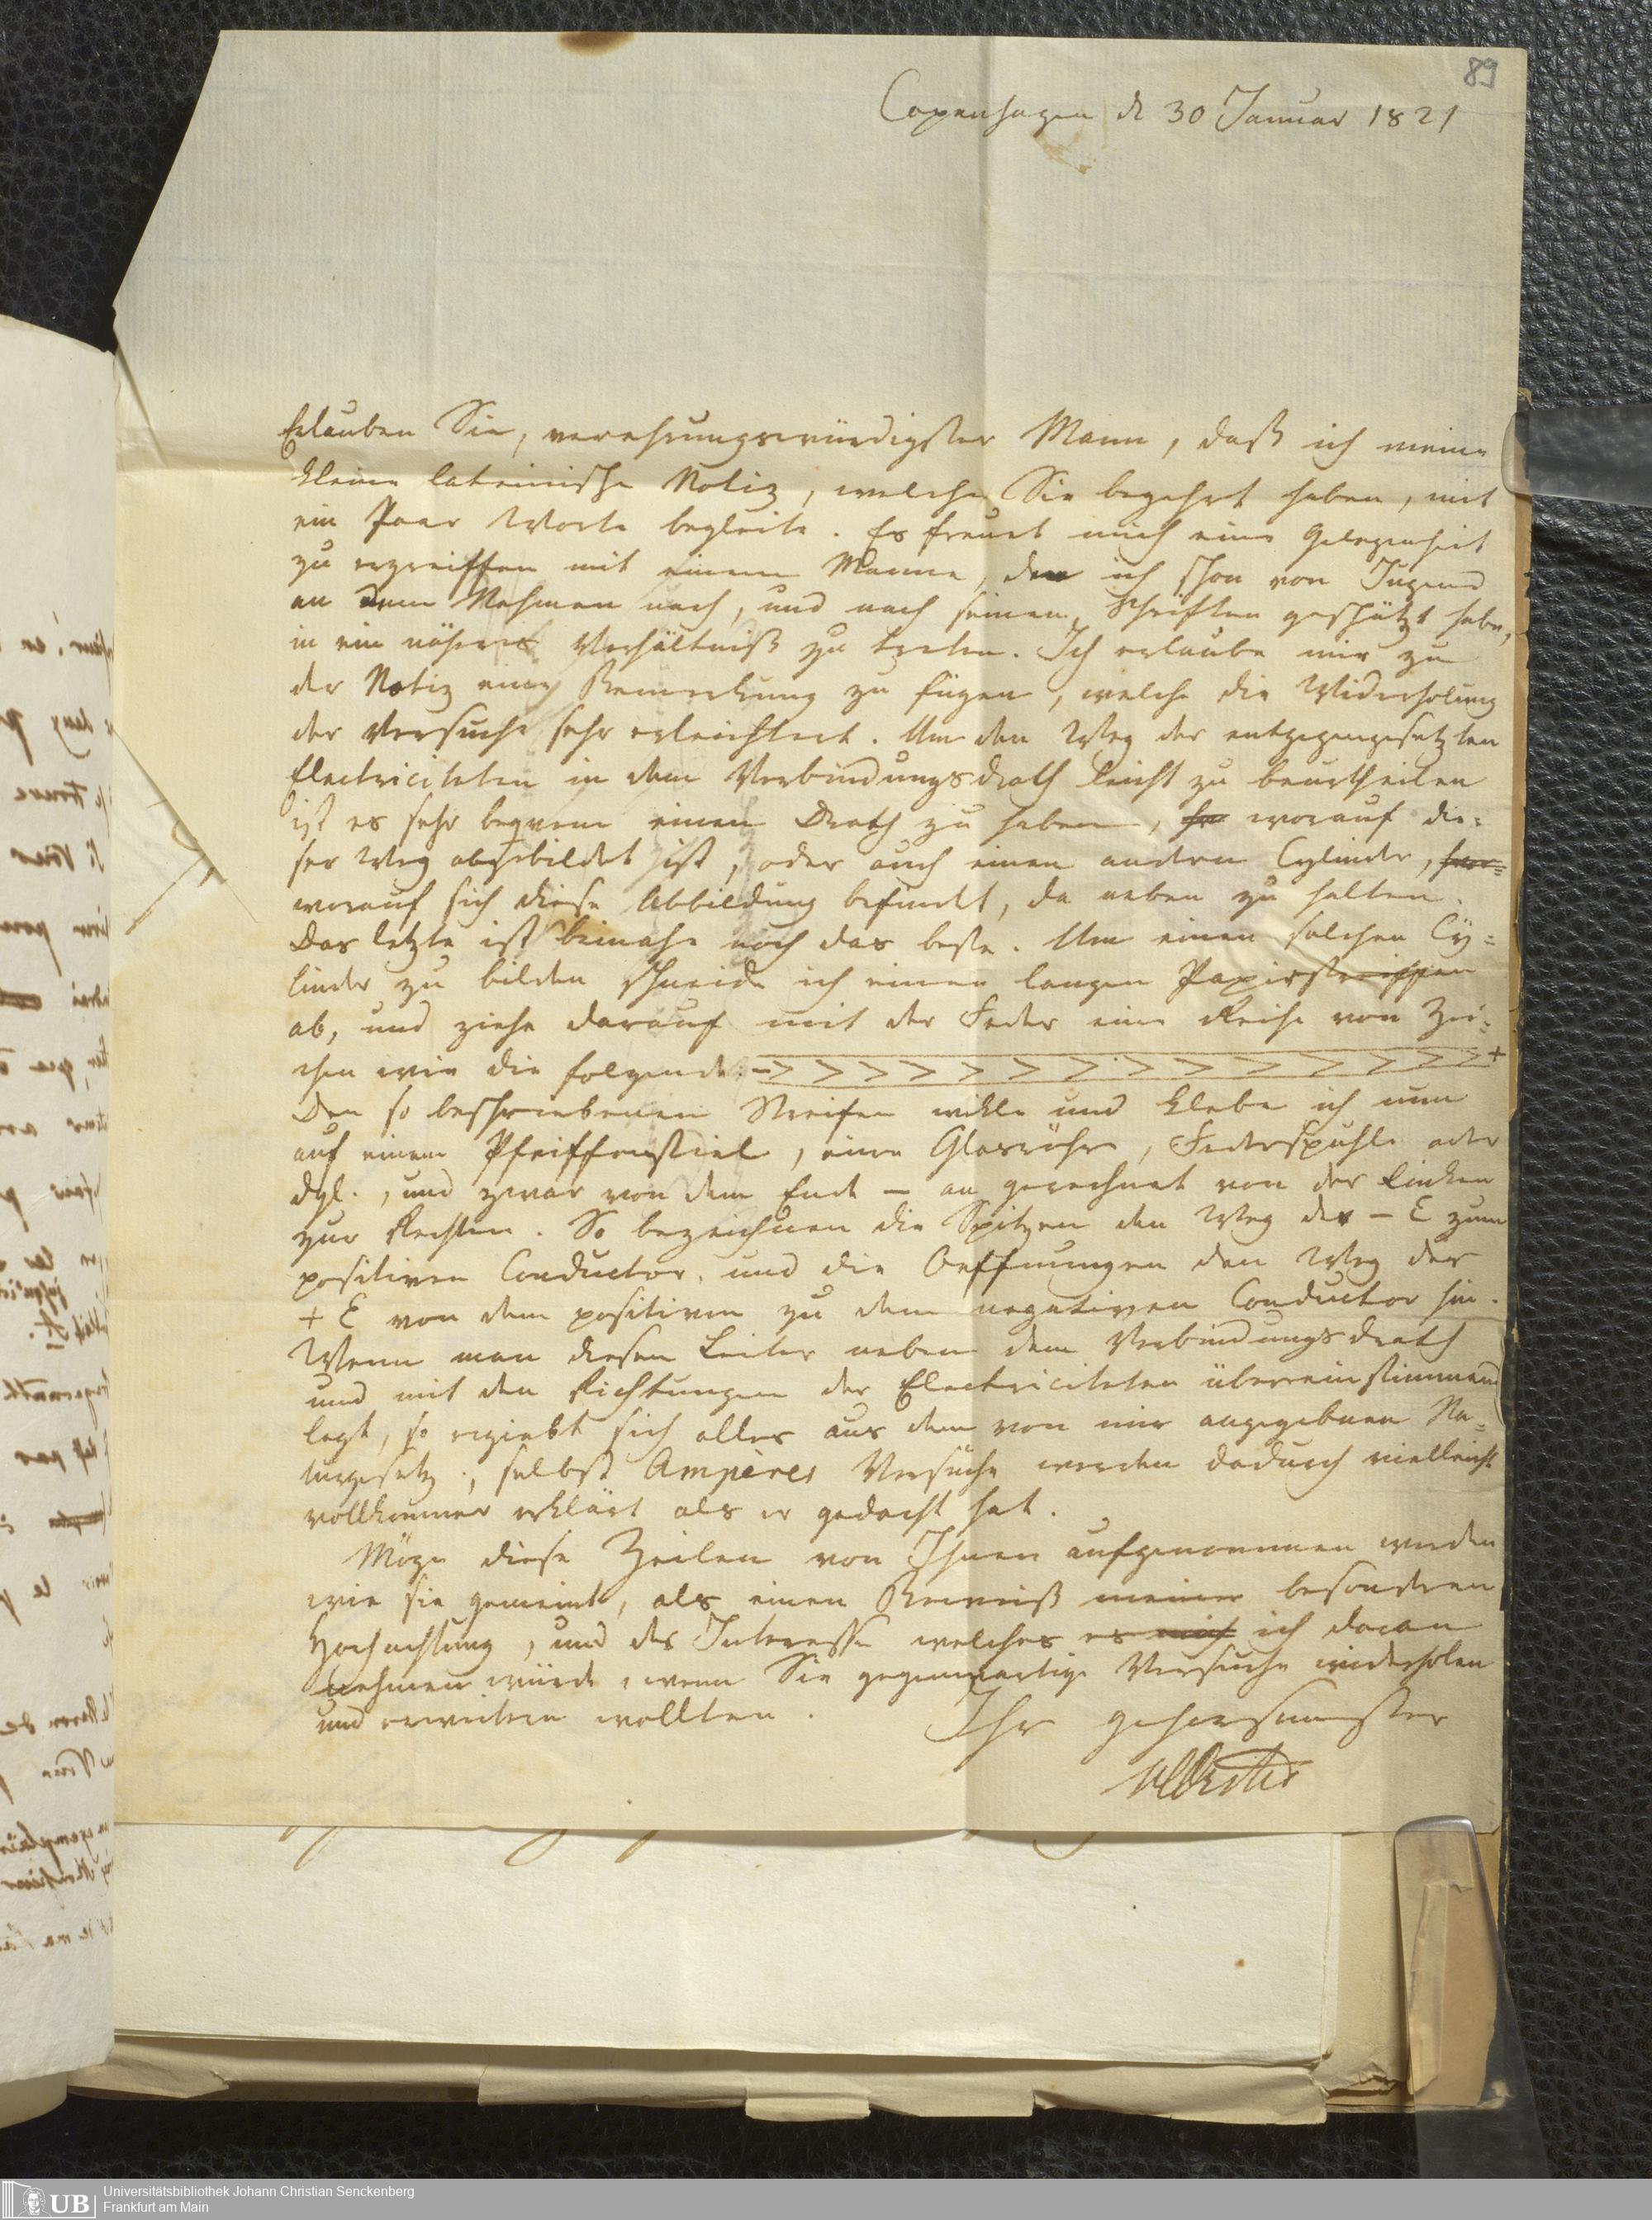 89
Copenhagen d 30 Januar 1821
Erlauben Sie, verehrungswürdigster Mann, daß ich meine
kleine lateinische Notiz, welche Sie begehrt haben, mit
ein Paar Worte begleite. Es freuet mich eine Gelegenheit
zu ergreiffen mit einem Manne, den ich schon von Jugend
an dem Nahmen nach, und nach seinen Schriften geschätzt habe,
in ein näheres Verhältniß zu treten. Ich erlaube mir zu
der Notiz eine Bemerkung zu fügen, welche die Widerholung
der Versuche sehr erleichtert. Um den Weg der entgegengesetzten
Electriciteten in dem Verbindungsdrath leicht zu beurtheilen
ist es sehr beqvem einen Drath zu haben, worauf die-
ser Weg abgebildet ist, oder auch einen andren Cylinder,
worauf sich diese Abbildung befindet, da neben zu halten.
Das letzte ist beinahe noch das beste. Um einen solchen Cy-
linder zu bilden schneide ich einen langen Papirstreiffen
ab, und ziehe darauf mit der Feder eine Reihe von Zei-
chen wie die folgende: - > > > > > > > > > > > > > > > +
Den so beschriebenen Streifen wikle und klebe ich nun
auf einem Pfeiffenstiel, eine Glasröhre, Federspuhle oder
dgl., und zwar von dem Ende - an gerechnet von der Linken
zur Rechten. So bezeichnen die Spitzen den Weg der - E zum
positiven Conductor, und die Oeffnungen den Weg der
+ E von dem positiven zu dem negativen Conductor hin.
Wenn man diesen Leiter neben dem Verbindungsdrath
und mit den Richtungen der Electriciteten übereinstimmend
legt, so ergiebt sich alles aus dem von mir angegebnen Na-
turgesetz, selbst Ampères Versuche werden dadurch vielleicht
vollkomner erklärt als er gedacht hat.
Möge diese Zeilen von Ihnen aufgenommen werden
wie sie gemeint, als einen Beweiß meiner besonderen
Hochachtung, und des Interesse welches es mich ich daran
nehmen würde, wenn Sie gegenwartige Versuche widerholen
und erweitern wollten.
Ihr gehorsamster
HCÖrsted
UB
Universitätsbibliothek Johann Christian Senckenberg
Frankfurt am Main